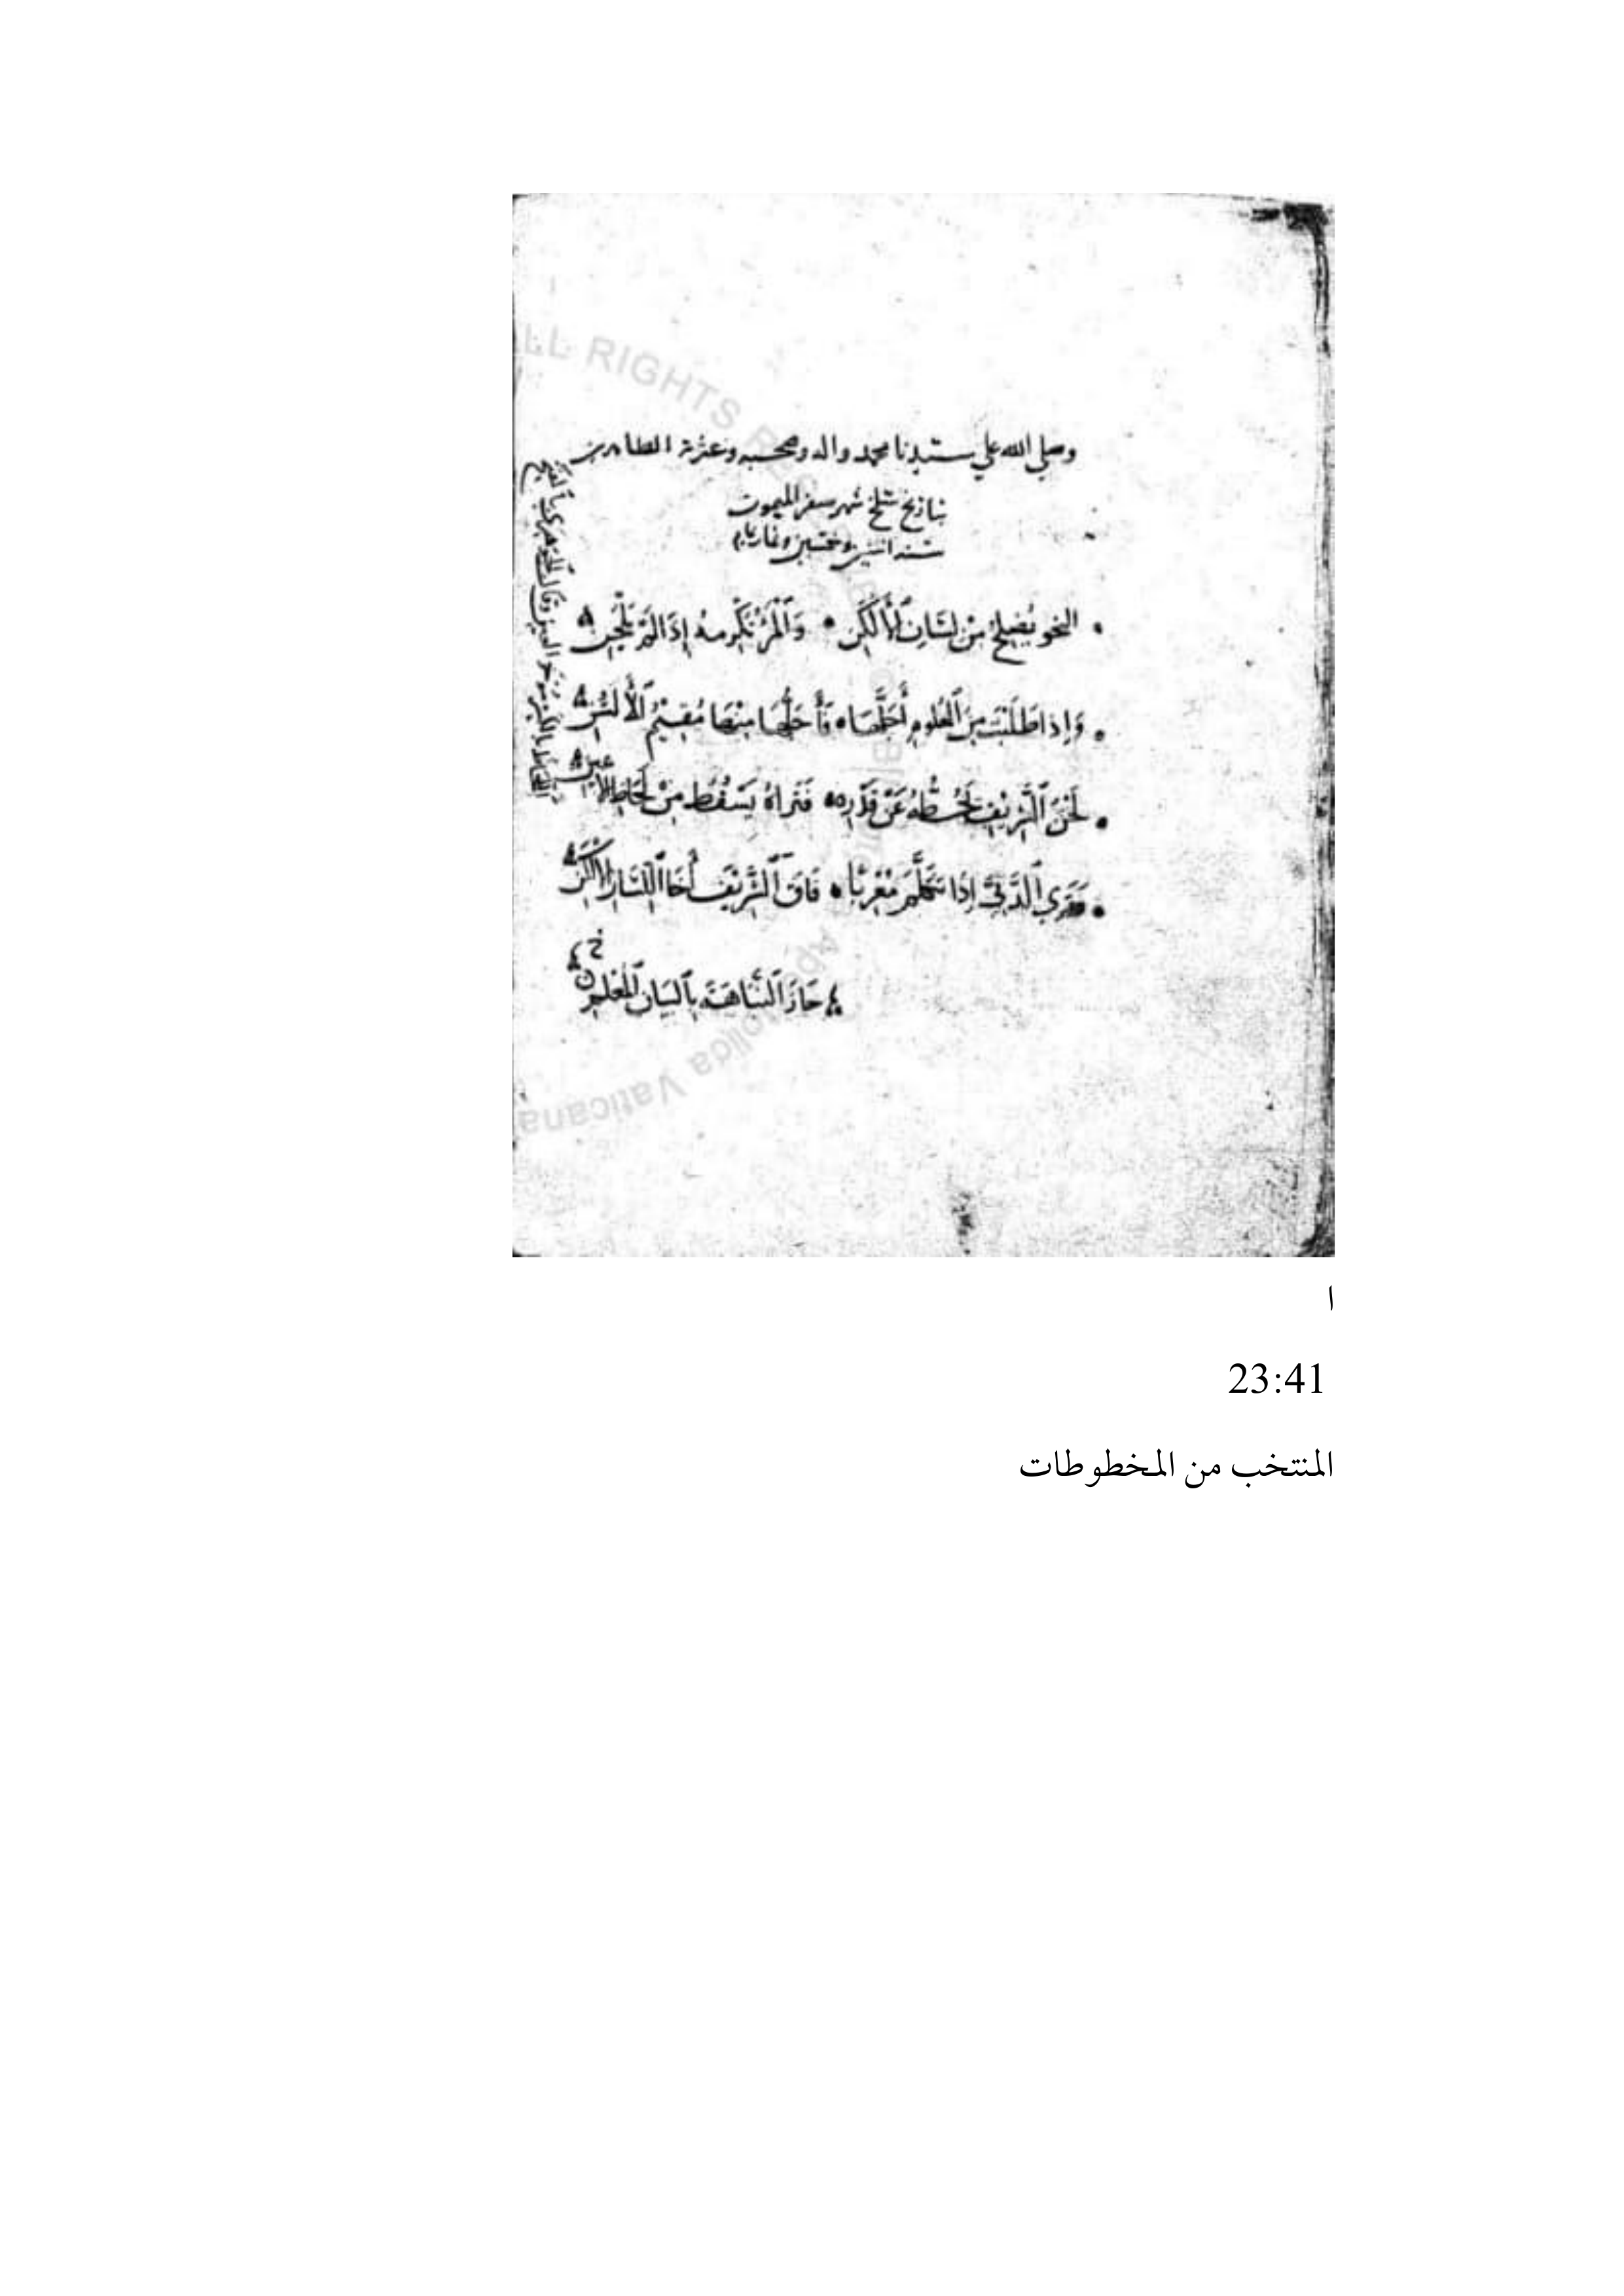 وصلي الله علي سيدنا محمد واله وصحبه وعترته الطاهرين
بتاريخ سلخ شهر سفر الميموت
سنه اثنين وخمسين وثمان
النحو يُصلِحُ مِنْ لِسَانِ الأَلْكَنِ • وَالْمَرْءُ تُكْرِمهُ إِذَا لَمْ يَلْحَنِ
وَإِذا طَلَبْتَ مِنَ العُلومِ أَجَلَّهَا • فَأَجَلُّهَا مِنْهَا مُقِيْمُ الأَلْسُنِ
لَحْنُ الشَّرِيْفِ يَحُطُّهُ عَنْ قَدْرِه • فَتَراهُ يَسْقُطُ مِنْ لَحَاظِ الاعين
وَتَرَي الدَّنِيَّ إِذَا تَكَلَّمَ مُعْرِبًا • فَاقَ الشَّرِيْفَ أَخَا اللِّسَانِ الأَلْكَنِ
خ
حَازَ النَّبَاهَةَ بِاللِّسَانِ المُعْلِنِ
ALL RIGHTS
Apostolica Vaticana
ا
23:41
المنتخب من المخطوطات